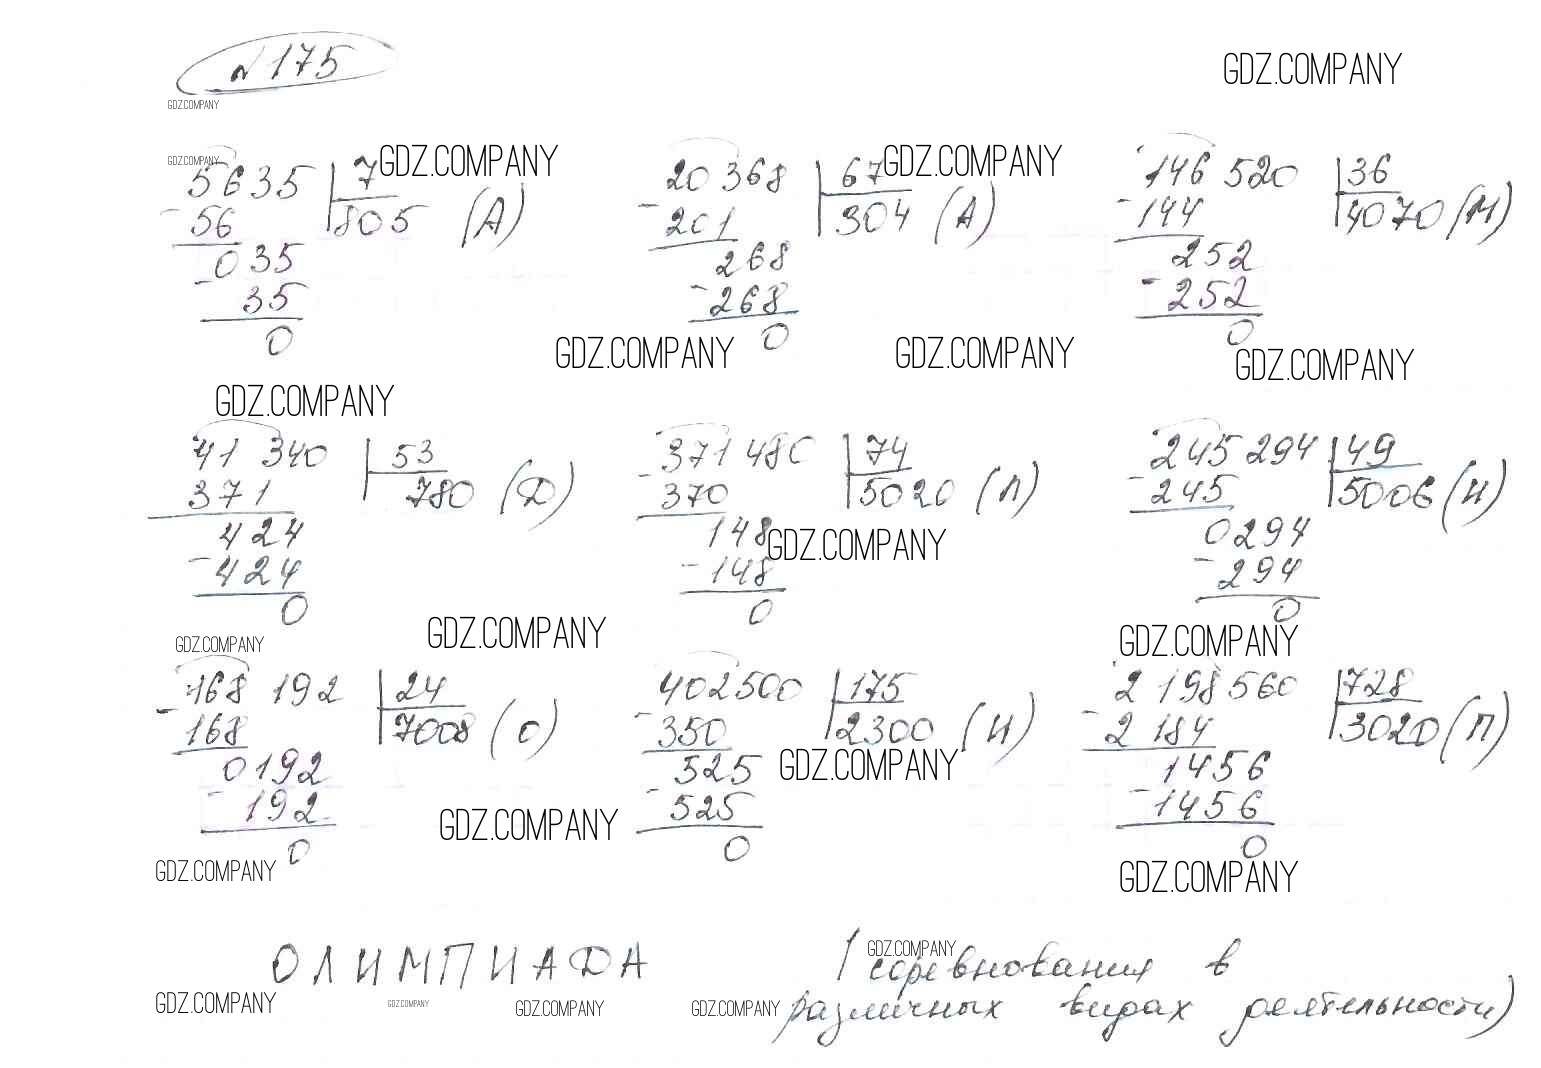 №175
GDZ.COMPANY
GDZ.COMPANY
GDZ.COMPANY GDZ.COMPANY GDZ.COMPANY
5635 | 7 20 368 | 67 146 520 | 36
- 56 805 (А) - 201 304 (А) - 144 4070 (М)
035 268 252
- 35 - 268 - 252
0 0 0
GDZ.COMPANY GDZ.COMPANY GDZ.COMPANY
GDZ.COMPANY
41 340 | 53 371 480 | 74 245 294 | 49
371 780 (Д) - 370 5020 (Л) - 245 5006 (И)
424 148 0294
GDZ.COMPANY
- 424 - 148 - 294
0 0 0
GDZ.COMPANY GDZ.COMPANY GDZ.COMPANY
168 192 | 24 402500 | 175 2 198 560 | 728
- 168 7008 (О) - 350 2300 (И) - 2 184 3020 (П)
0192 525 1456
GDZ.COMPANY
- 192 - 525 - 1456
GDZ.COMPANY
0 0 0
GDZ.COMPANY GDZ.COMPANY
ОЛИМПИАДА (соревнования в
GDZ.COMPANY
различных видах деятельности)
GDZ.COMPANY GDZ.COMPANY GDZ.COMPANY GDZ.COMPANY